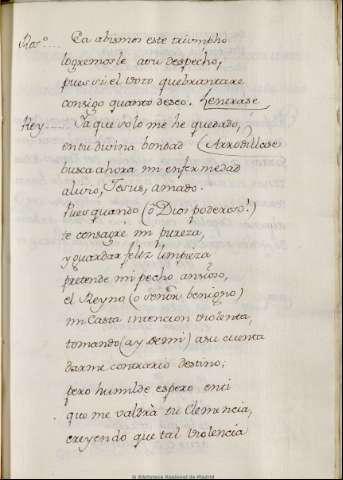 Ea abismos este triumpho
logremosle a su despecho,
pues si el voto quebrantare
consigo quanto deseo. Lentrase
Rey.... Ya que solo me he quedado,
en tu divina bondad (Arrodillase
busca ahora mi enfermedad
alivio, Jesus, amado.
Pues quando (ò Dios poderoso!)
te consagrè mi pureza,
y guardar feliz limpieza
pretende mi pecho ansioso,
el Reyno (o señor benigno)
mi casta intencion violenta,
tomando (ay de mi) a su cuenta
darme contrario destino;
pero humilde espero en ti
que me valdrà tu Clemencia,
creyendo que tal violencia
© Biblioteca Nacional de Madrid